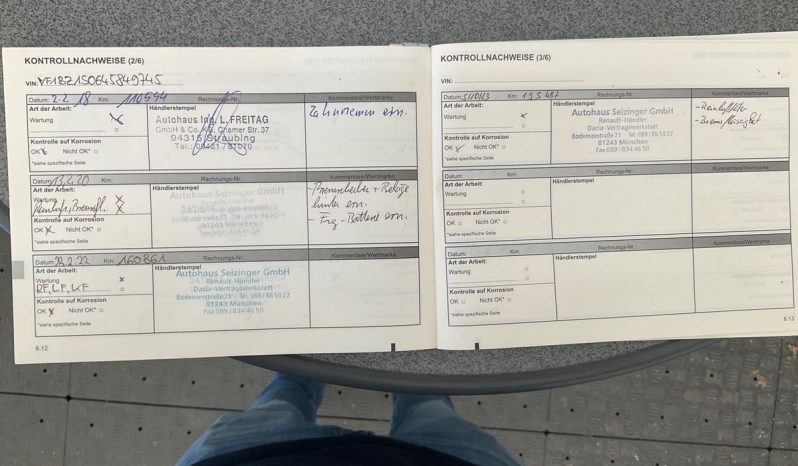 KONTROLLNACHWEISE (2/6)
VIN: VF1BZ1S0645849745
Datum: 2.2.18 Km: 110594 Rechnungs-Nr.: Kommentare/Wertmarke
Art der Arbeit:
Wartung
Kontrolle auf Korrosion
OK Nicht OK*
*siehe spezifische Seite
Händlerstempel
Autohaus Ing. L. FREITAG
GmbH & Co. KG, Chamer Str. 37
94315 Straubing
Tel.: 09421/781070
Zahnriemen ern.
Datum: 13.2.20 Km:
Art der Arbeit:
Wartung
Kontrolle auf Korrosion
OK Nicht OK*
*siehe spezifische Seite
Händlerstempel
Autohaus Seizinger GmbH
81243 München
Bremsscheiben + Beläge
hinten ern.
- Fzg-Batterie ern.
Km: 160861
Art der Arbeit:
Wartung
Kontrolle auf Korrosion
OK Nicht OK*
*siehe spezifische Seite
Händlerstempel
Autohaus Seizinger GmbH
Renault-Händler
Dacia-Vertragswerkstatt
Bodenseestraße 71 Tel. 089/88 50 22
81243 München
Fax 089/834 46 50
Kommentare/Wertmarke
6.12
KONTROLLNACHWEISE (3/6)
VIN:
Km: 195487 Rechnungs-Nr.: Kommentare/Wertmarke
Art der Arbeit:
Wartung
Kontrolle auf Korrosion
OK Nicht OK*
*siehe spezifische Seite
Händlerstempel
Autohaus Seizinger GmbH
Renault-Händler
Dacia-Vertragswerkstatt
Bodenseestraße 71 Tel. 089/88 50 22
81243 München
Fax 089/834 46 50
- Bremsflüssigkeit
Datum: Km: Rechnungs-Nr.: Kommentare/Wertmarke
Art der Arbeit:
Wartung
Kontrolle auf Korrosion
OK Nicht OK*
*siehe spezifische Seite
Händlerstempel
Datum: Km: Rechnungs-Nr.: Kommentare/Wertmarke
Art der Arbeit:
Wartung
Kontrolle auf Korrosion
OK Nicht OK*
*siehe spezifische Seite
Händlerstempel
6.13